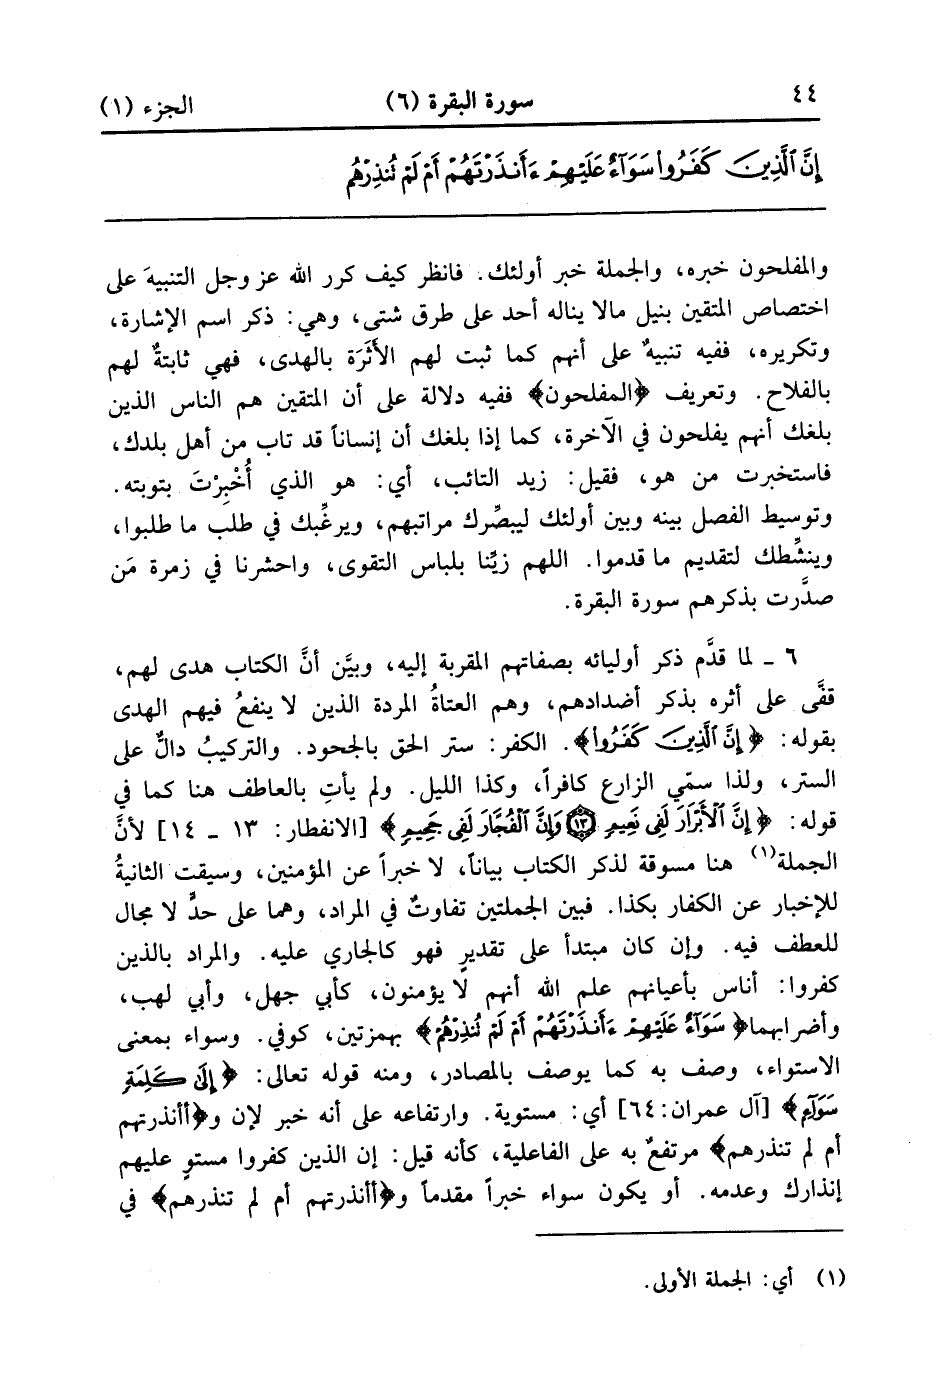 ٤٤ سورة البقرة (٦) الجزء (١)
إِنَّ ٱلَّذِينَ كَفَرُوا۟ سَوَآءٌ عَلَيْهِمْ ءَأَنذَرْتَهُمْ أَمْ لَمْ تُنذِرْهُمْ
والمفلحون خبره، والجملة خبر أولئك. فانظر كيف كرر الله عز وجل التنبيهَ على
اختصاص المتقين بنيل مالا يناله أحد على طرق شتى، وهي: ذكر اسم الإشارة،
وتكريره، ففيه تنبيهٌ على أنهم كما ثبت لهم الأَثَرَة بالهدى، فهي ثابتةٌ لهم
بالفلاح. وتعريف ﴿المفلحون﴾ ففيه دلالة على أن المتقين هم الناس الذين
بلغك أنهم يفلحون في الآخرة، كما إذا بلغك أن إنساناً قد تاب من أهل بلدك،
فاستخبرت من هو، فقيل: زيد التائب، أي: هو الذي أُخْبِرْتَ بتوبته.
وتوسيط الفصل بينه وبين أولئك ليبصِّرك مراتبهم، ويرغِّبك في طلب ما طلبوا،
وينشِّطك لتقديم ما قدموا. اللهم زيِّنا بلباس التقوى، واحشرنا في زمرة مَن
صدَّرت بذكرهم سورة البقرة.
٦ ـ لما قدَّم ذكر أوليائه بصفاتهم المقربة إليه، وبيَّن أنَّ الكتاب هدى لهم،
قفَّى على أثره بذكر أضدادهم، وهم العتاةُ المردة الذين لا ينفعُ فيهم الهدى
بقوله: ﴿إِنَّ ٱلَّذِينَ كَفَرُوا۟﴾. الكفر: ستر الحق بالجحود. والتركيبُ دالٌّ على
الستر، ولذا سمّي الزارع كافراً، وكذا الليل. ولم يأتِ بالعاطف هنا كما في
قوله: ﴿إِنَّ ٱلْأَبْرَارَ لَفِى نَعِيمٍ ١٣ وَإِنَّ ٱلْفُجَّارَ لَفِى جَحِيمٍ﴾ [الانفطار: ١٣ ـ ١٤] لأنَّ
الجملة(١) هنا مسوقة لذكر الكتاب بياناً، لا خبراً عن المؤمنين، وسيقت الثانيةُ
للإخبار عن الكفار بكذا. فبين الجملتين تفاوتٌ في المراد، وهما على حدٍّ لا مجال
للعطف فيه. وإن كان مبتدأ على تقديرٍ فهو كالجاري عليه. والمراد بالذين
كفروا: أناس بأعيانهم علم الله أنهم لا يؤمنون، كأبي جهل، وأبي لهب،
وأضرابهما ﴿سَوَآءٌ عَلَيْهِمْ ءَأَنذَرْتَهُمْ أَمْ لَمْ تُنذِرْهُمْ﴾ بهمزتين، كوفي. وسواء بمعنى
الاستواء، وصف به كما يوصف بالمصادر، ومنه قوله تعالى: ﴿إِلَىٰ كَلِمَةٍ
سَوَآءٍ﴾ [آل عمران: ٦٤] أي: مستوية. وارتفاعه على أنه خبر لإن و﴿أأنذرتهم
أم لم تنذرهم﴾ مرتفعٌ به على الفاعلية، كأنه قيل: إن الذين كفروا مستوٍ عليهم
إنذارك وعدمه. أو يكون سواء خبراً مقدماً و﴿أأنذرتهم أم لم تنذرهم﴾ في
(١) أي: الجملة الأولى.